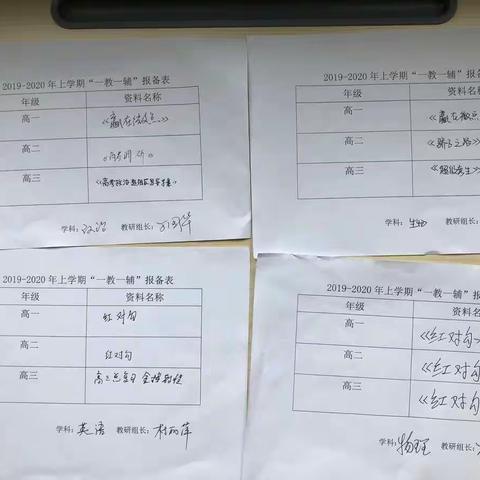 2019-2020年上学期“一教一辅”报备表
年级 资料名称
高一 《赢在微点》
高二
高三
学科：政治 教研组长：
2019-2020年上学期“一教一辅”报备
年级 资料名
高一 《赢在微点
高二 《骄子之路》
高三
学科：生物 教研组长：
2019-2020年上学期“一教一辅”报备表
年级 资料名称
高一 红对勾
高二 红对勾
高三 高三总复习
学科：英语 教研组长：杜丽萍
2019-2020年上学期“一教一辅”报
年级 资料
高一 《红对勾》
高二 《红对勾
高三 《红对勾
学科：物理 教研组长：